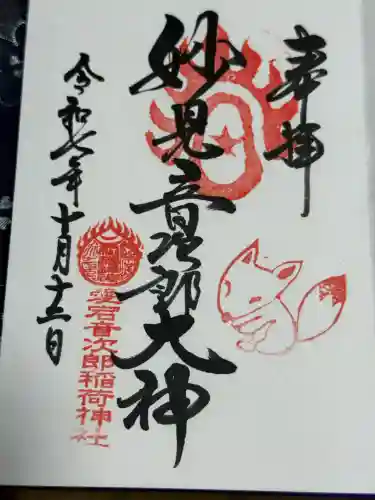 奉拝
妙見音次郎大神
令和七年十月十二日
菱石音次郎稲荷神社